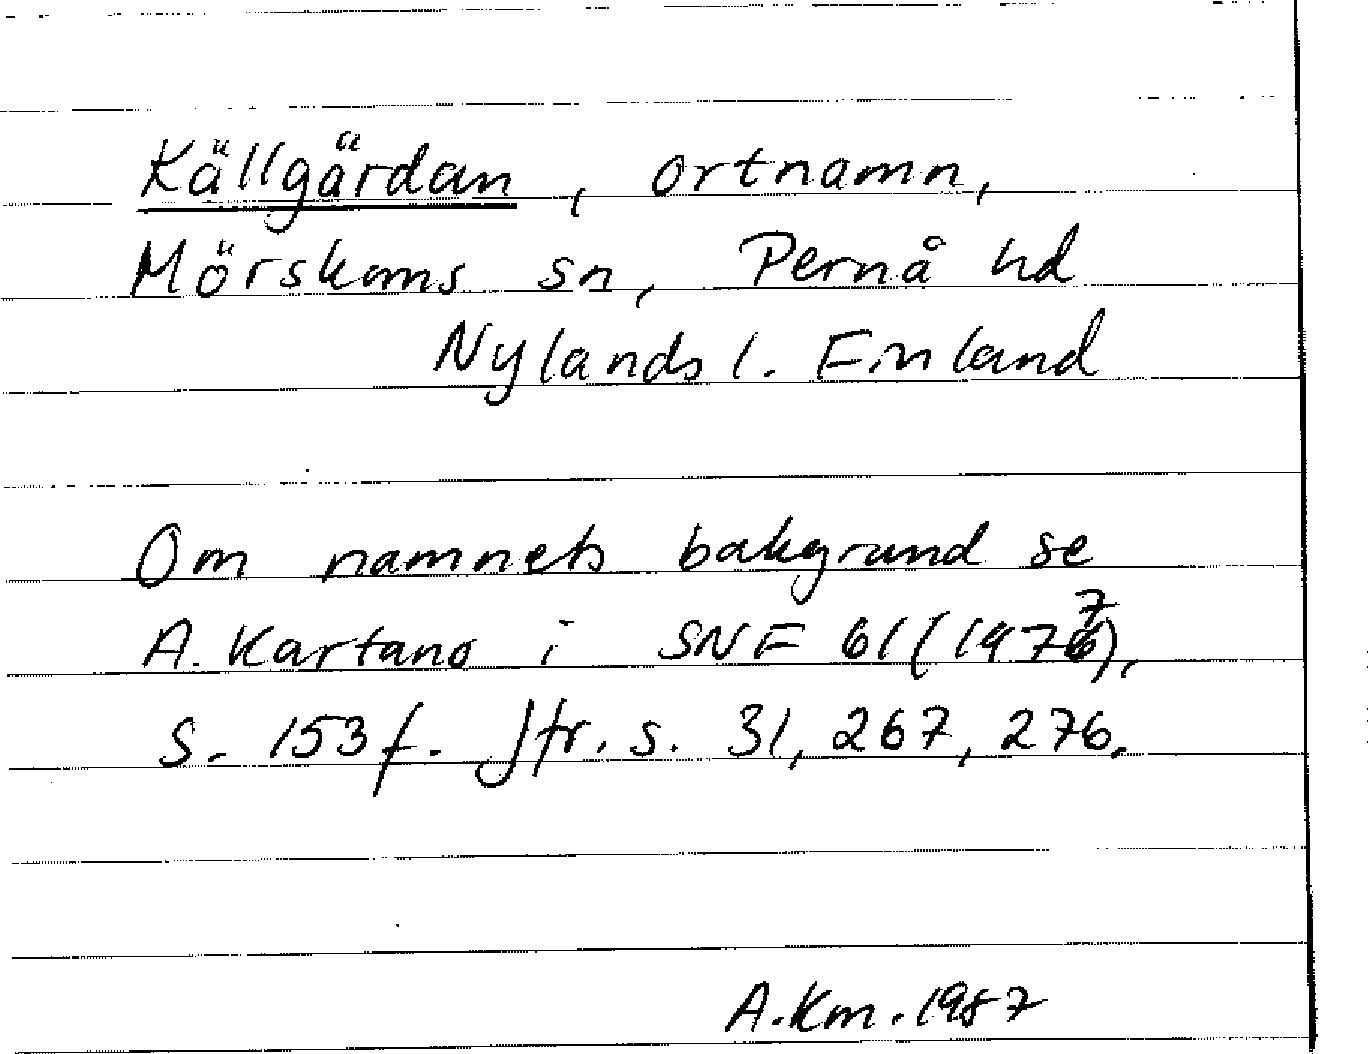 Källgärdan, ortnamn,
Mörskoms sn, Pernå hd
Nylands l. Finland
Om namnets bakgrund se
A. Kartano i SNF 61 (1977),
s. 153 f. Jfr. s. 31, 267, 276.
A.Km. 1987